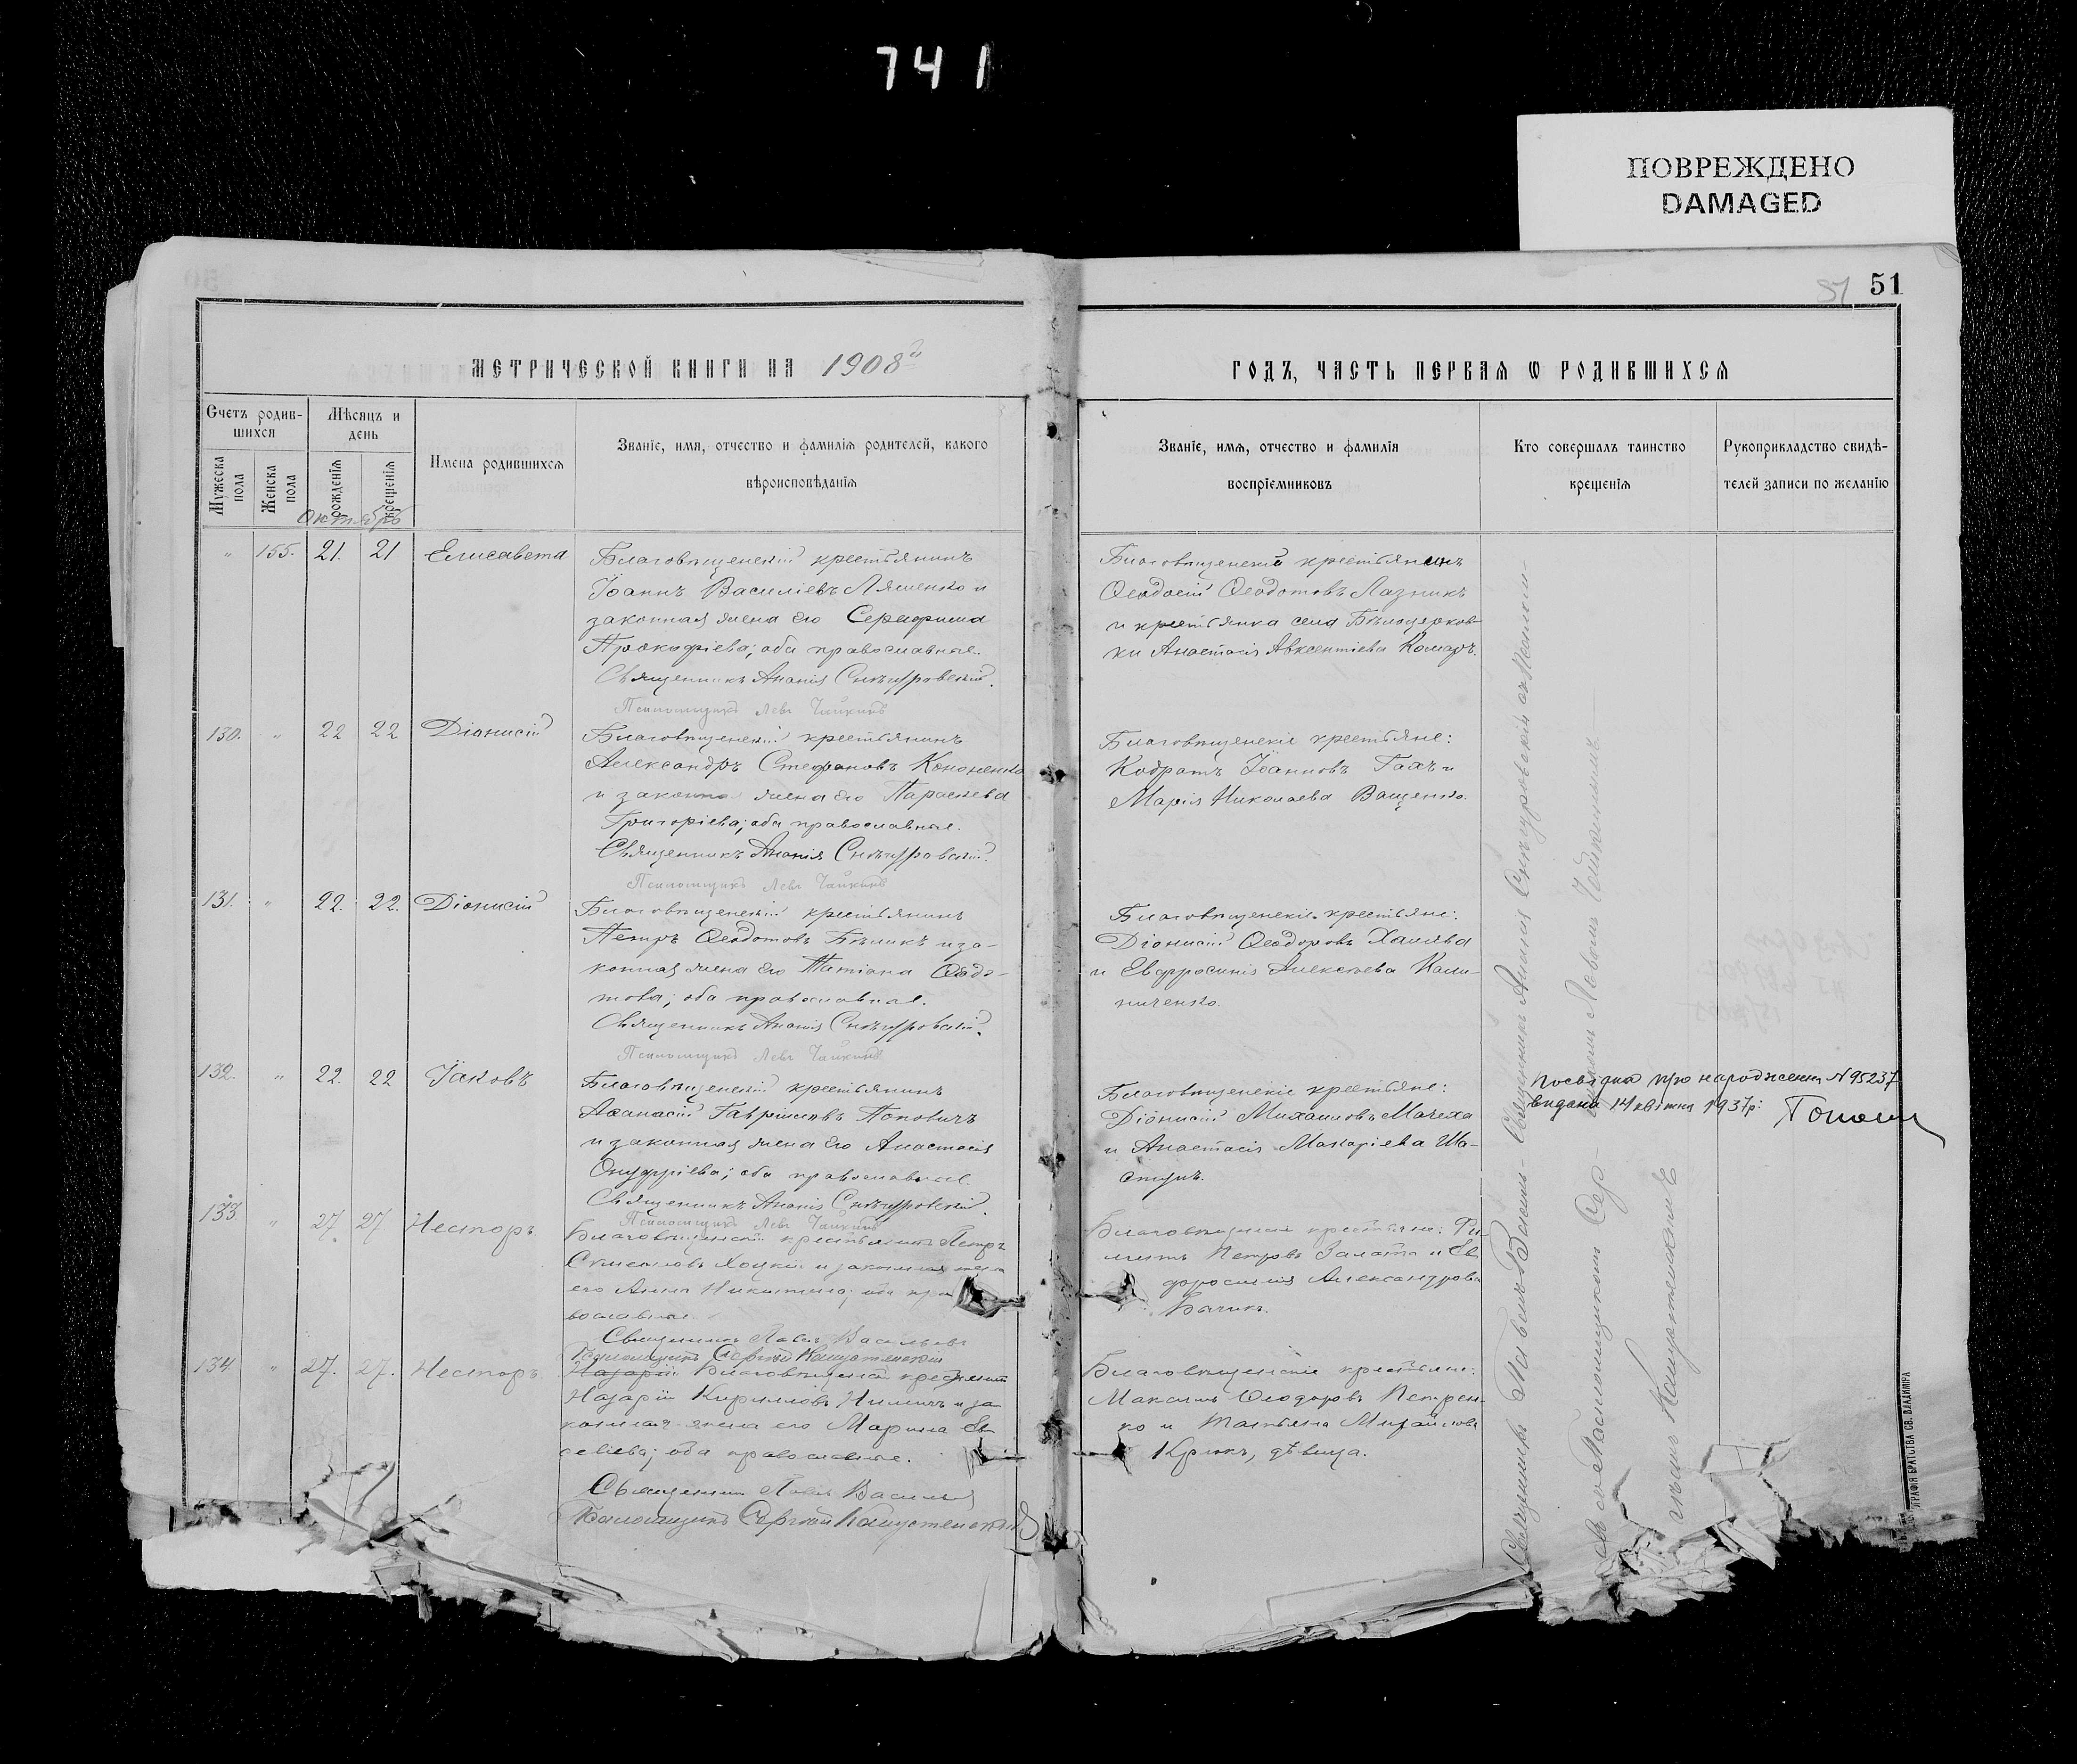 741
ПОВРЕЖДЕНО
DAMAGED
51
51
МЕТРИЧЕСКОЙ КНИГИ НА 1908й
ГОДЪ, ЧАСТЬ ПЕРВАЯ Ѡ РОДИВШИХСЯ
Счетъ родив-
шихся
Мѣсяцъ и
день
Мужеска
пола
Женска
пола
рожденія
крещенія
Имена родившихся
Званіе, имя, отчество и фамилія родителей, какого
вѣроисповѣданія
Званіе, имя, отчество и фамилія
воспріемниковъ
Кто совершалъ таинство
крещенія
Рукоприкладство свидѣ-
телей записи по желанію
Октябрь
" 155. 21. 21 Елисавета
Благовѣщенскій крестьянинъ
Іоаннъ Василіевъ Ляшенко и
законная жена его Серафима
Прокофіева; оба православные.
Священникъ Ананія Снѣгуровскій.
Псаломщикъ Левъ Чайкинъ
Благовѣщенскій крестьянинъ
Ѳеодосій Ѳеодотовъ Лазникъ
и крестьянка села Бѣлоцерков-
ки Анастасія Авксентіева Комаръ.
130. " 22 22 Діонисій
Благовѣщенскій крестьянинъ
Александръ Стефановъ Кононенко
и законна жена его Параскева
Григоріева; оба православные.
Священникъ Ананія Снѣгуровскій.
Псаломщикъ Левъ Чайкинъ
Благовѣщенскіе крестьяне:
Кодратъ Іоанновъ Гахъ и
Марія Николаева Ващенко.
131. " 22. 22. Діонисій
Благовѣщенскій крестьянинъ
Петръ Ѳеодотовъ Бѣликъ и за-
конная жена его Татіана Ѳеодо-
това; оба православные.
Священникъ Ананія Снѣгуровскій.
Псаломщикъ Левъ Чайкинъ
Благовѣщенскіе крестьяне:
Діонисій Ѳеодоровъ Халява
и Евфросинія Алексѣева Кали-
ниченко.
132. " 22. 22 Іаковъ
Благовѣщенскій крестьянинъ
Аѳанасій Гавріиловъ Поповичъ
и законная жена его Анастасія
Онуфріева; оба православные.
Священникъ Ананія Снѣгуровскій.
Псаломщикъ Левъ Чайкинъ
Благовѣщенскіе крестьяне:
Діонисій Михаиловъ Мачеха
и Анастасія Макаріева Ша-
стунъ.
Посвідка про народження N 95237
видана 14 квітня 1937р:
133. " 27. 27 Несторъ
Благовѣщенскій крестьянинъ Петръ
Симеоновъ Хоцкій и законная жена
его Анна Никитина; оба пра
вославные.
Священникъ Павелъ Васильевъ
Псаломщикъ Сергѣй Капустенскій
Благовѣщенскіе крестьяне: Фи-
липпъ Петровъ Залата и Ев
фросинія Александрова
Бычикъ.
134 " 27. 27. Несторъ
Назарій Благовѣщенскій крестьянинъ
Назарій Кирилловъ и за
конная жена его Марина Ев
севіева; оба православные.
Священникъ Павелъ Васильевъ
Псаломщикъ Сергѣй Капустенскій
Благовѣщенскіе крестьяне:
Максимъ Ѳеодоровъ Петрен-
ко и Татьяна Михайлова
Крюкъ, дѣвица.
Священникъ Ананія Снѣгуровскій съ Псалом-
щикомъ Львомъ Чайкинымъ
Священникъ Павелъ Василь-
евъ съ Псаломщикомъ Сер-
гѣемъ Капустенскимъ
ГРАФІЯ БРАТСТВА СВ. ВЛАДИМІРА